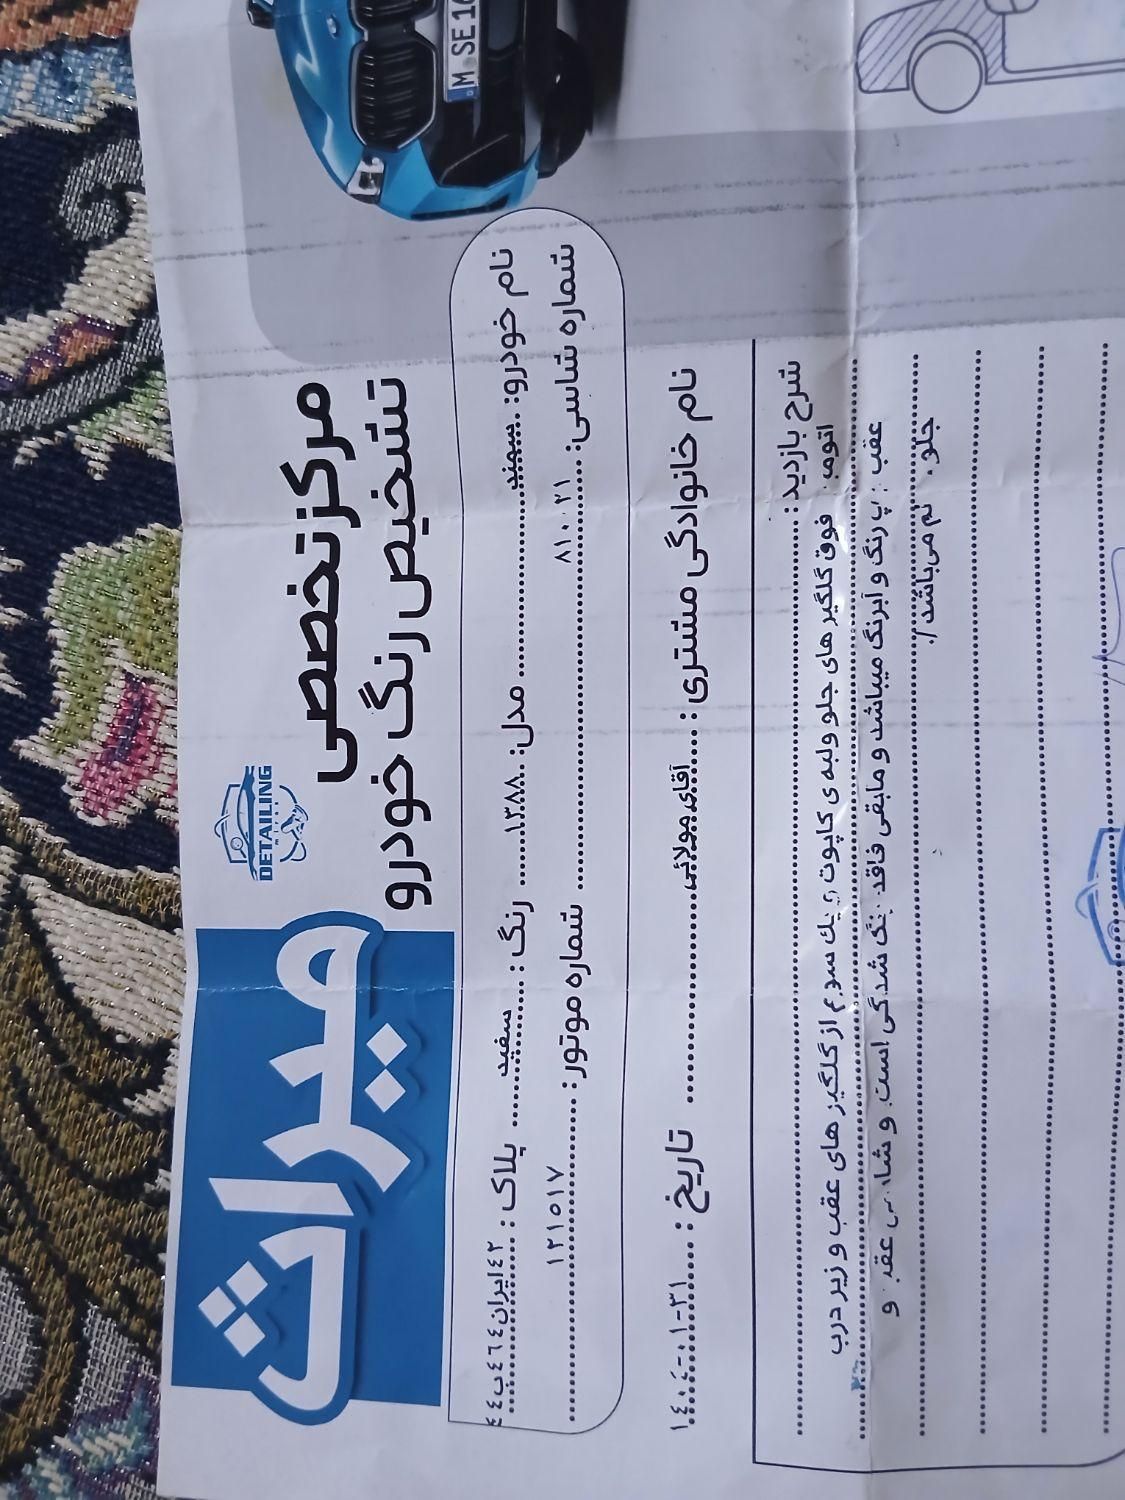 M SE 16
میراث
DETAILING
مرکز تخصصی
تشخیص رنگ خودرو
نام خودرو: سمند مدل: ۱۳۸۸ رنگ: سفید پلاک: ۴۲ایران۴۶۴ب۴۴
شماره شاسی: ۸۱۰۰۲۱ شماره موتور: ۱۲۱۵۱۷
نام خانوادگی مشتری: آقای مولائی تاریخ: ۱۴۰۴-۰۱-۳۱
شرح بازدید:
فوق گلگیر های جلو ولبه ی کاپوت یک سوم از گلگیر های عقب و زیر درب
عقب رنگ و آبرنگ میباشد و مابقی فاقد شدگی است و عقب و
جلو می‌باشد/.